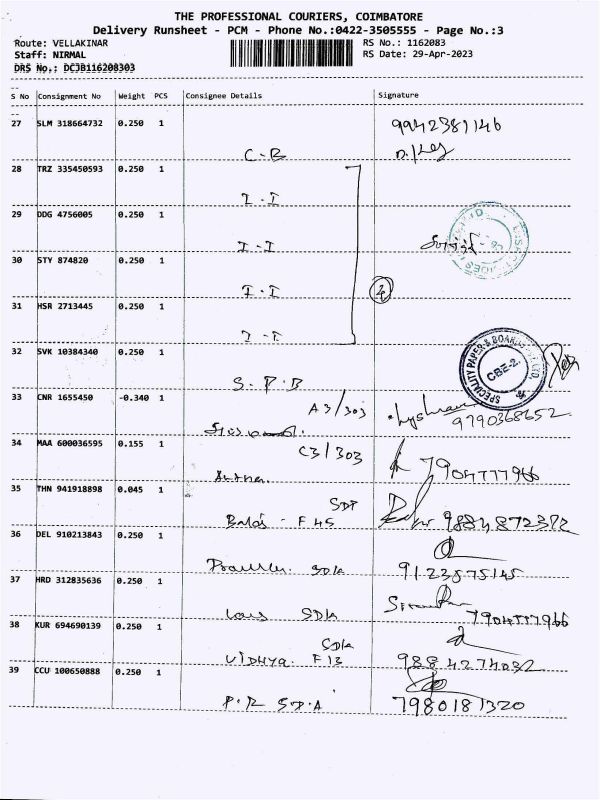 THE PROFESSIONAL COURIERS, COIMBATORE
Delivery Runsheet - PCM - Phone No.:0422-3505555 - Page No.:3
Route: VELLAKINAR
RS No.: 1162083
Staff: NIRMAL
RS Date: 29-Apr-2023
DRS No.: DCJB116208303
S No Consignment No Weight PCS Consignee Details Signature
27 SLM 318664732 0.250 1 9942381146
C-B
28 TRZ 335450593 0.250 1
I-I
29 DDG 4756005 0.250 1
I-I
30 STY 874820 0.250 1
I-I
4
31 HSR 2713445 0.250 1
I-I
32 SVK 10384340 0.250 1
SPECIALITY PAPER & BOARDS PVT LTD.
CBE-2.
S.P.B
33 CNR 1655450 -0.340 1
A3/303
9790368652
34 MAA 600036595 0.155 1
C3/303
7904777966
35 THN 941918898 0.045 1
SDA
Balaji - F45 9884872382
36 DEL 910213843 0.250 1
SDIA 9123575145
37 HRD 312835636 0.250 1
SDIA 7904777966
38 KUR 694690139 0.250 1
SDIA
VIDHYA F13 9884274032
39 CCU 100650888 0.250 1
P.R SDA 7980181320